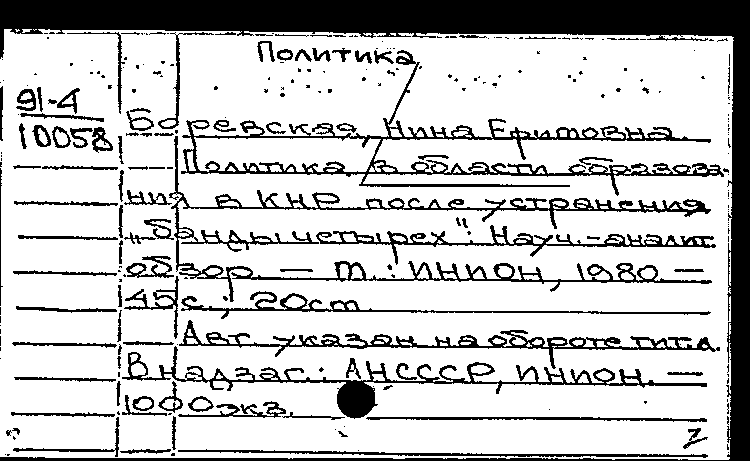 Политика
91-4
10058
Боревская, Нина Ефимовна.
Политика в области образова-
ния в КНР после устранения
„банды четырех": Науч.-аналит.
обзор. — М.: ИНИОН, 1980. —
45 с.; 20 см.
Авт. указан на обороте тит. л.
В надзаг.: АН СССР, ИНИОН. —
1000 экз.